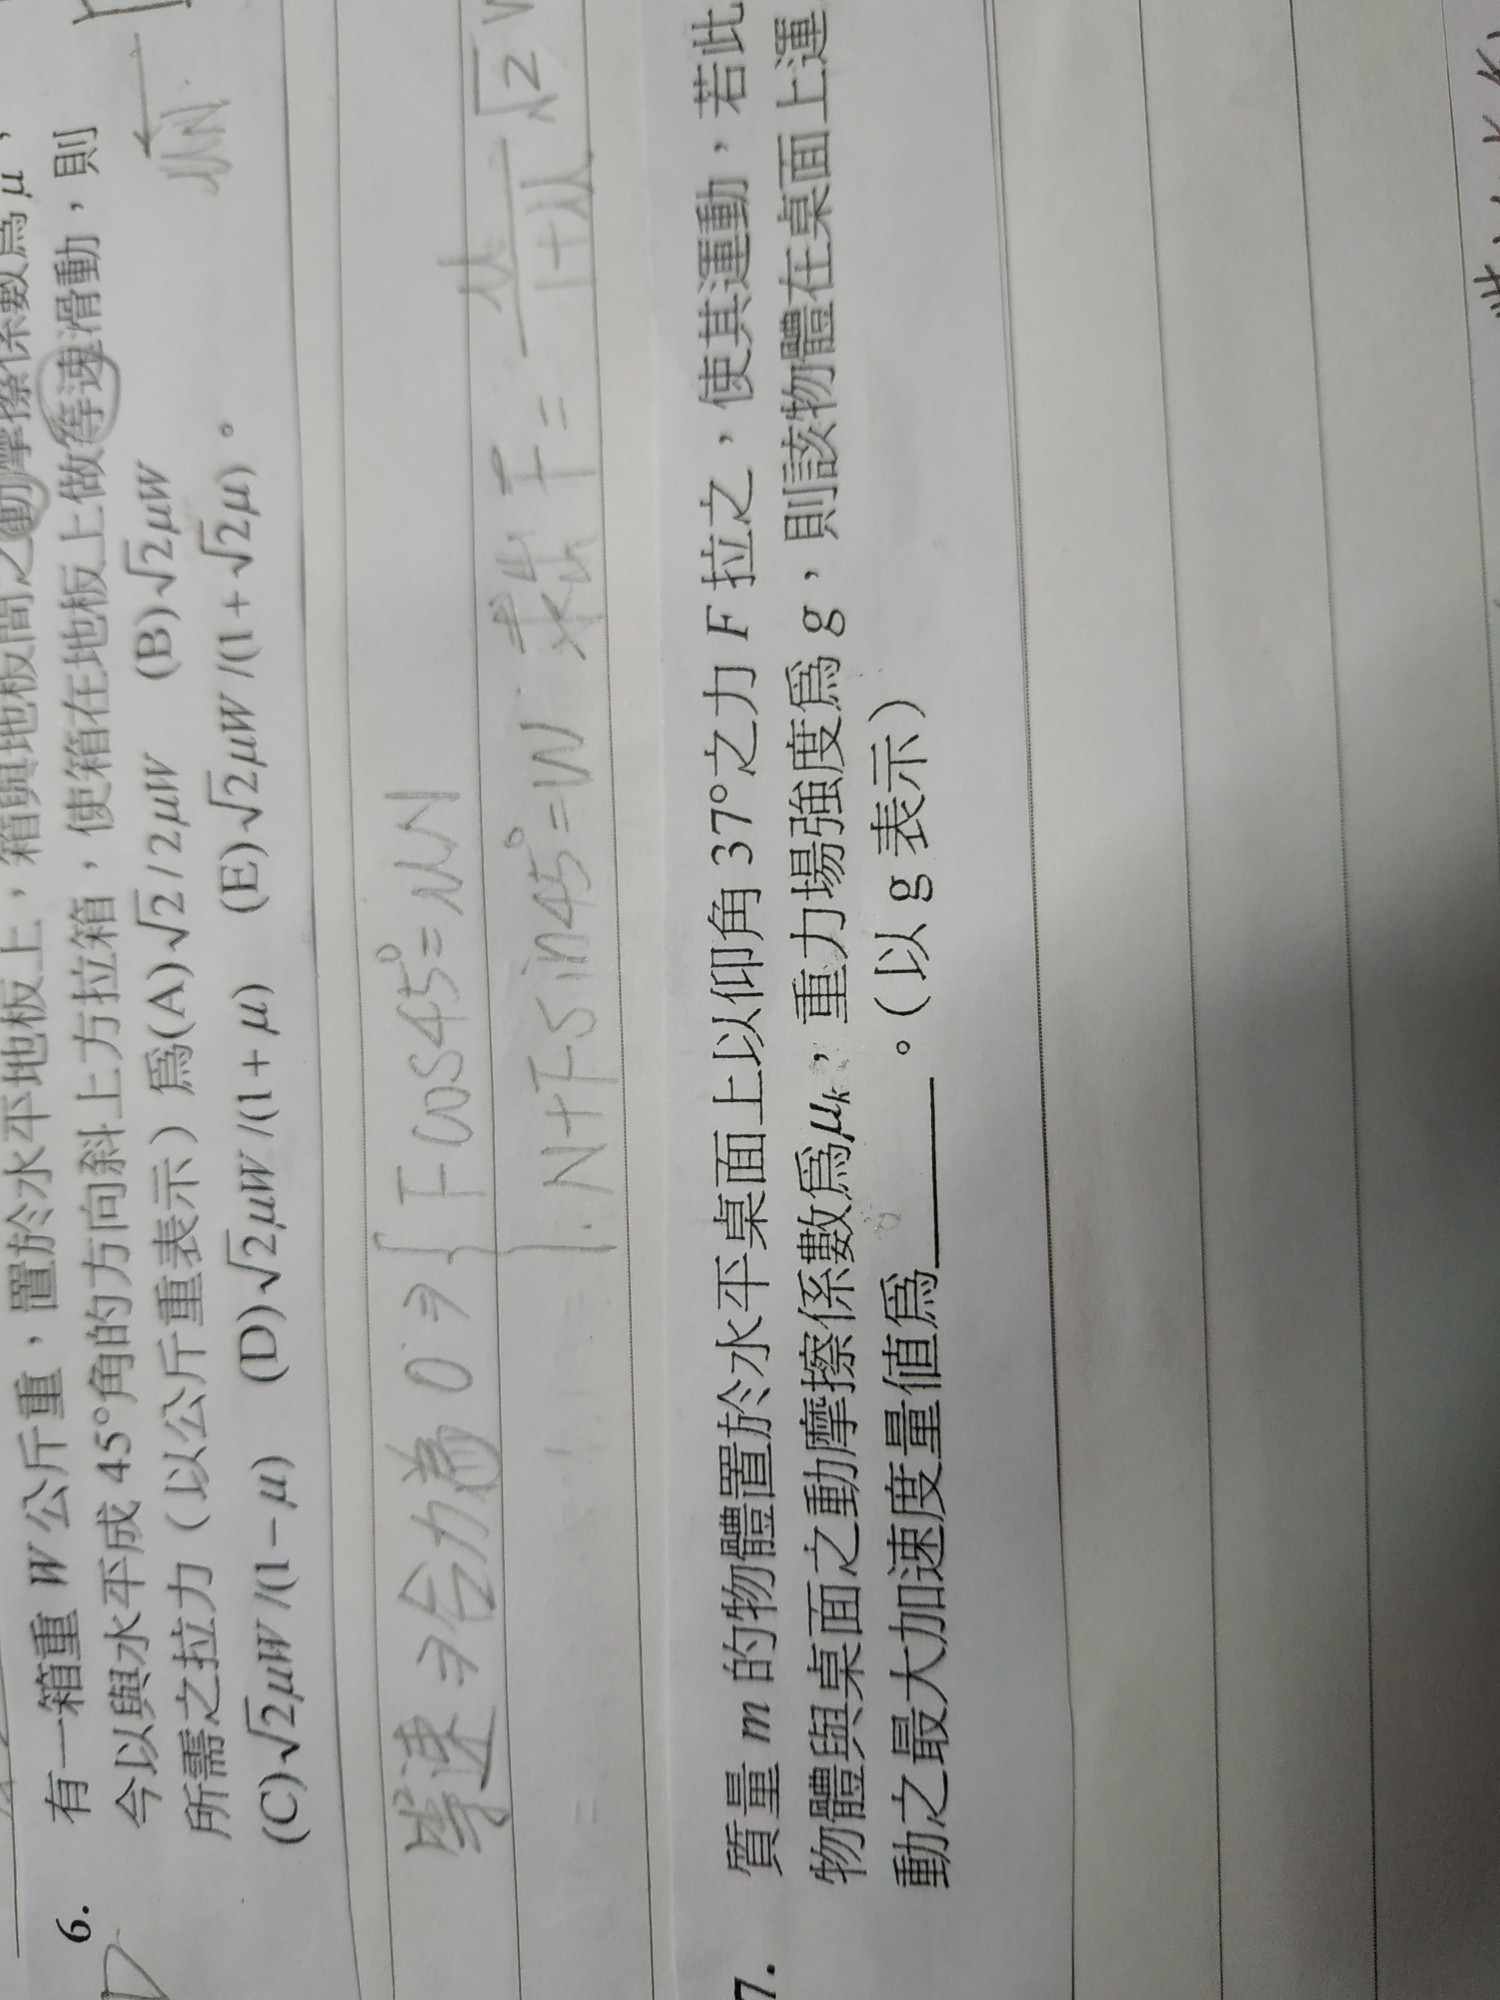 6. 有一箱重 W 公斤重，置於水平地板上，箱與地板間之動摩擦係數為 μ，
今以與水平成 45°角的方向斜上方拉箱，使箱在地板上做等速滑動，則
所需之拉力（以公斤重表示）為(A)√2/2μW (B)√2μW
(C)√2μW/(1−μ) (D)√2μW/(1+μ) (E)√2μW/(1+√2μ)。
D
μN
等速⇒合力為0⇒{ F cos45°=μN
N+F sin45°=W 求出 F= μ/1+μ √2 W
7. 質量 m 的物體置於水平桌面上以仰角 37°之力 F 拉之，使其運動，若此
物體與桌面之動摩擦係數為μk，重力場強度為 g，則該物體在桌面上運
動之最大加速度量值為______。（以 g 表示）